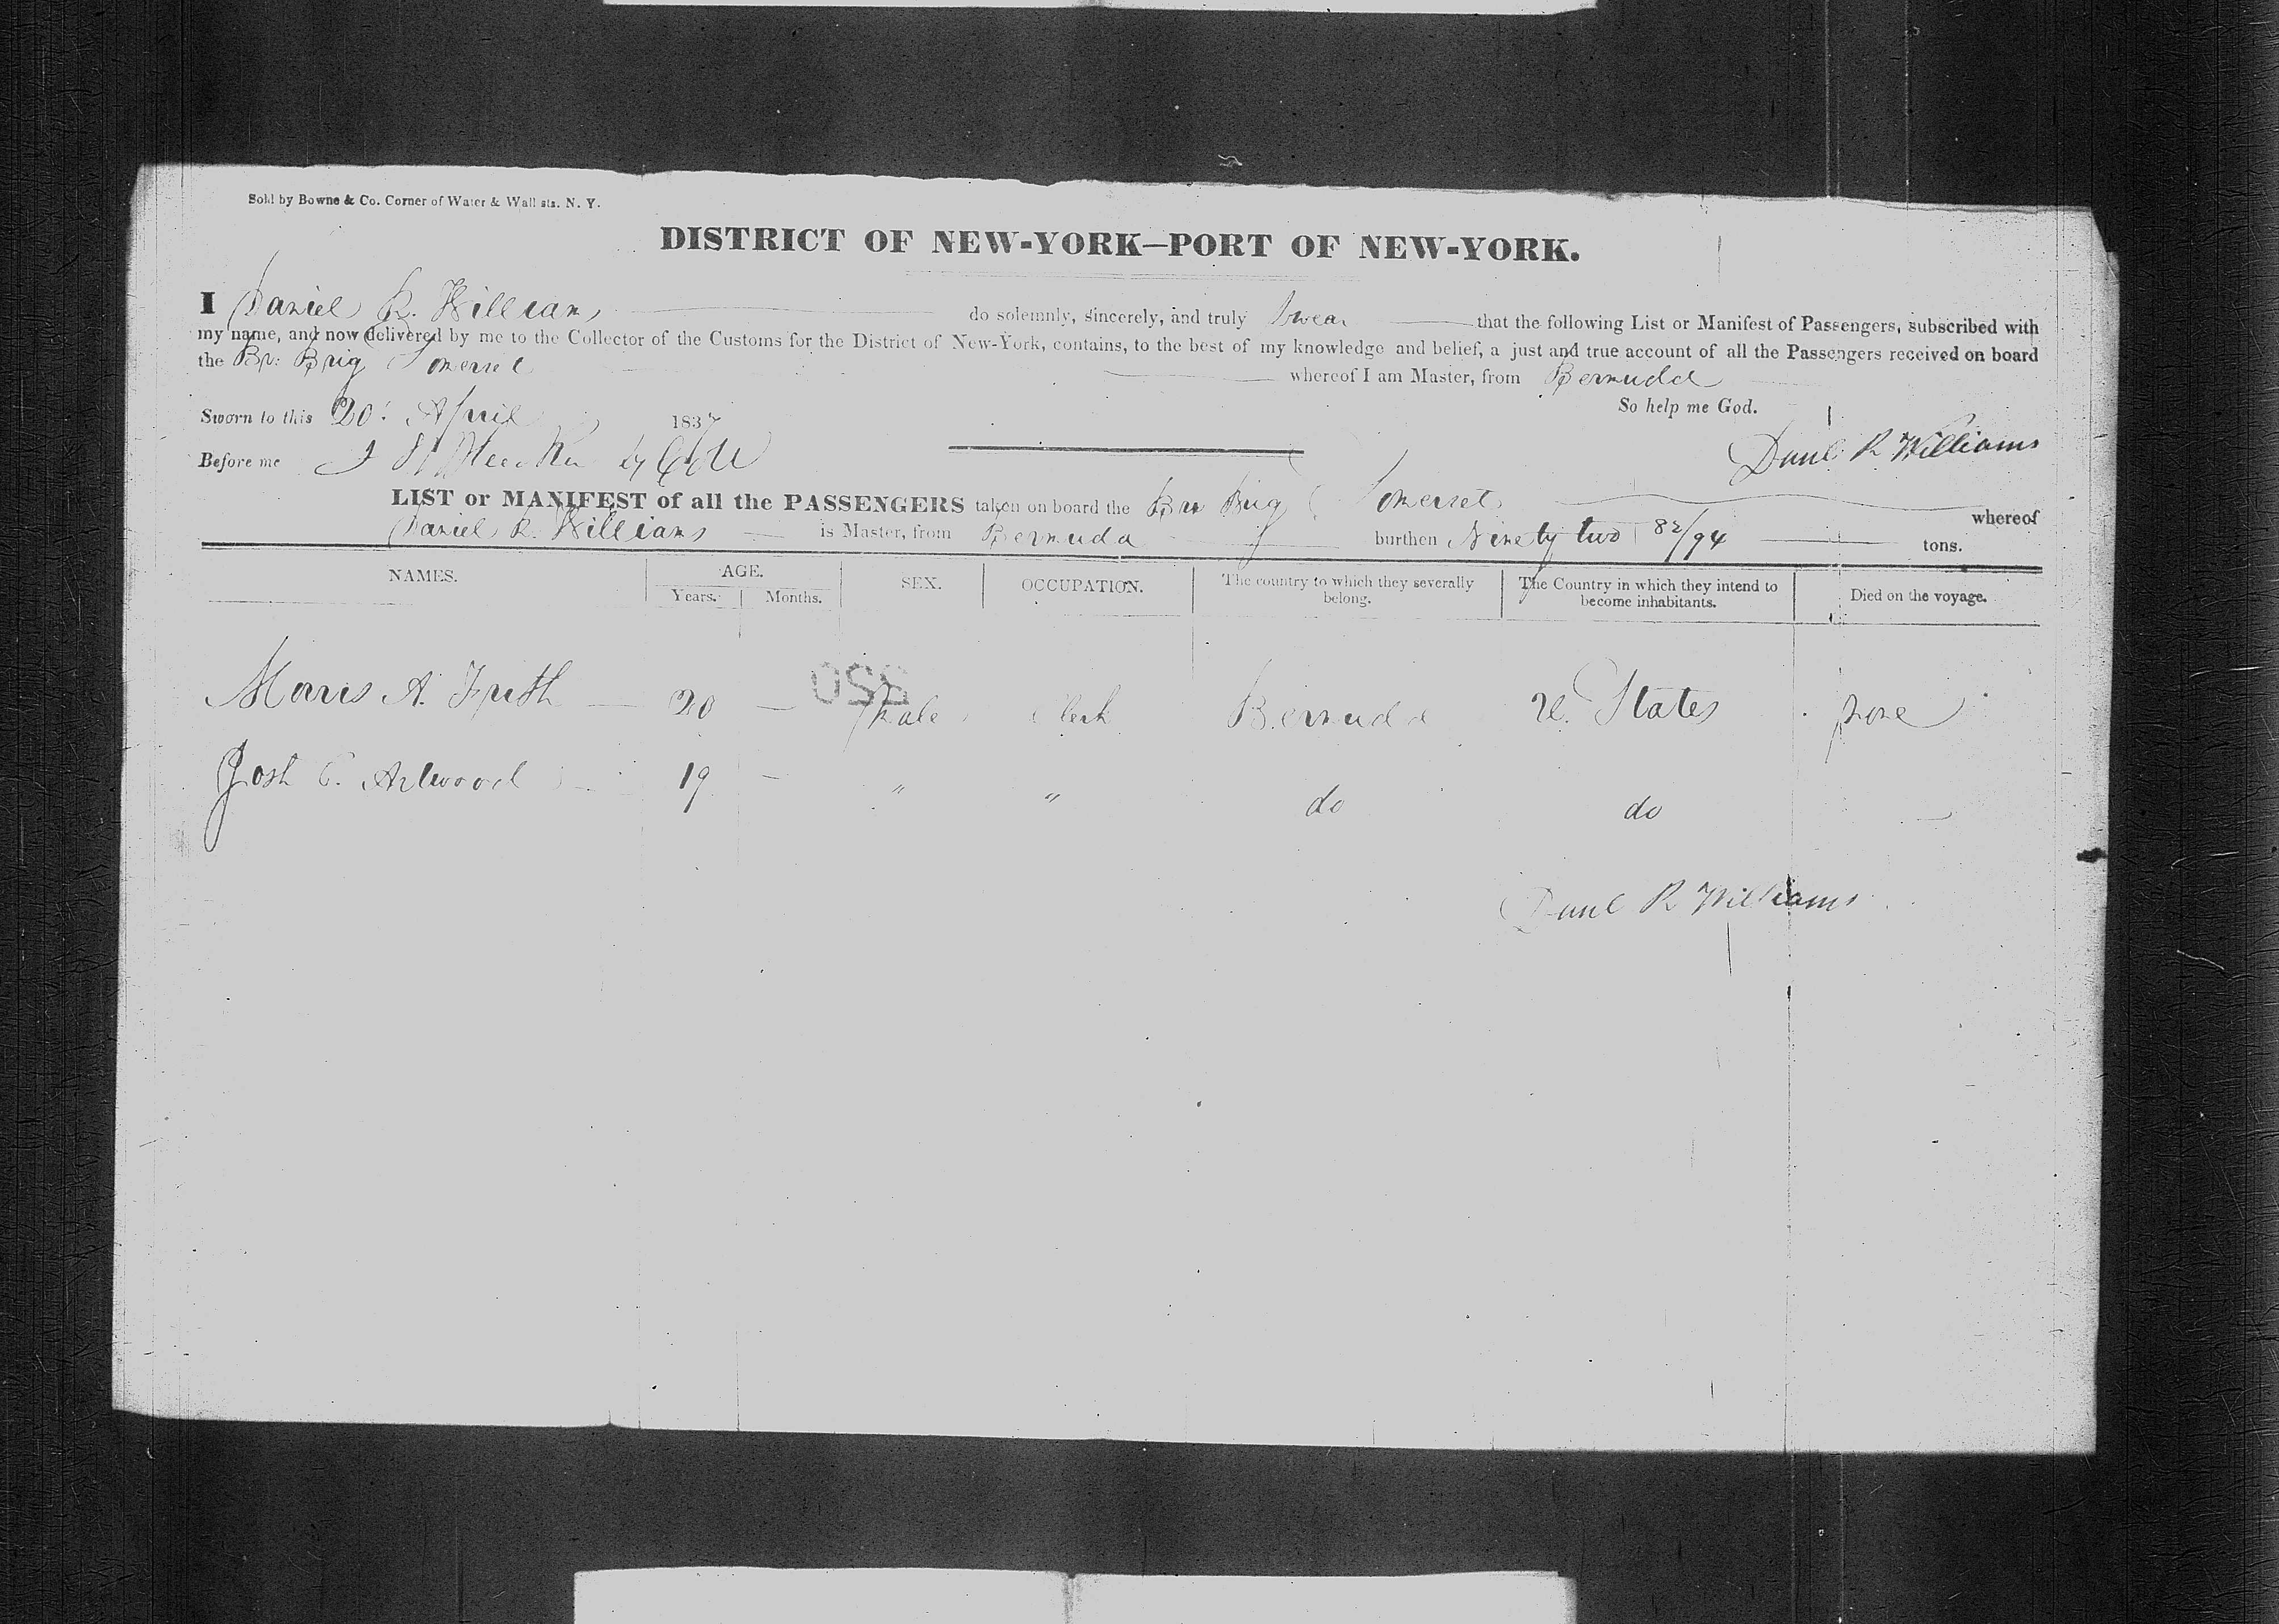 Sold by Bowne & Co. Corner of Water & Wall sts. N. Y.
DISTRICT OF NEW-YORK—PORT OF NEW-YORK.
I Daniel R. Williams do solemnly, sincerely, and truly swear that the following List or Manifest of Passengers, subscribed with
my name, and now delivered by me to the Collector of the Customs for the District of New-York, contains, to the best of my knowledge and belief, a just and true account of all the Passengers received on board
the Br: Brig Somerset whereof I am Master, from Bermuda
So help me God.
Sworn to this 20: April 1837
Danl: R Williams
Before me
LIST or MANIFEST of all the PASSENGERS taken on board the Brig Somerset whereof
Daniel R. Williams is Master, from Bermuda burthen Ninety two 82/94 tons.
NAMES. AGE. SEX. OCCUPATION. The country to which they severally belong. The Country in which they intend to become inhabitants. Died on the voyage.
Years. Months.
Morris A. Frith — 20 — Male Clerk Bermuda U. States none
Josh 19 — " " do do —
Danl R Williams